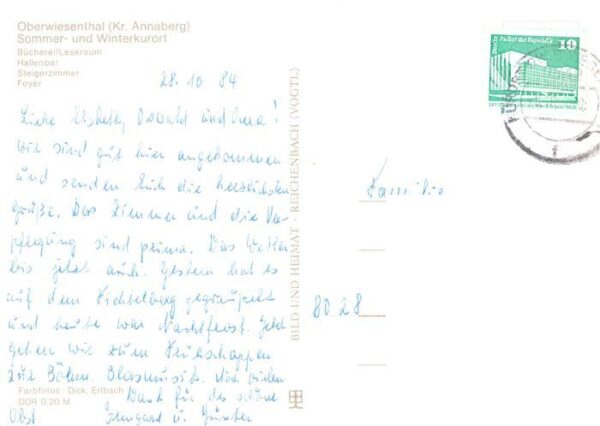 Oberwiesenthal (Kr. Annaberg)
Sommer- und Winterkurort
Bücherei/Leseraum
Hallenbar
Steigerzimmer
Foyer
28.10 84
Liebe Elsbeth, Oswald und Oma!
Wir sind gut hier angekommen
und senden Euch die herzlichsten
Grüße. Das Zimmer und die Ver-
pflegung sind prima. Das Wetter
bis jetzt auch. Gestern hat es
auf dem Fichtelberg gegraupelt
und heute war Nachtfrost. Jetzt
gehen wir zum Frühschoppen
zur Böhm. Blasmusik. Noch vielen
Dank für das schöne
Obst Irmgard u. Günter
Farbfotos: Dick, Erlbach
DDR 0,20 M
BILD UND HEIMAT · REICHENBACH (VOGTL)
Palast der Republik
10
DDR
Familie
8028